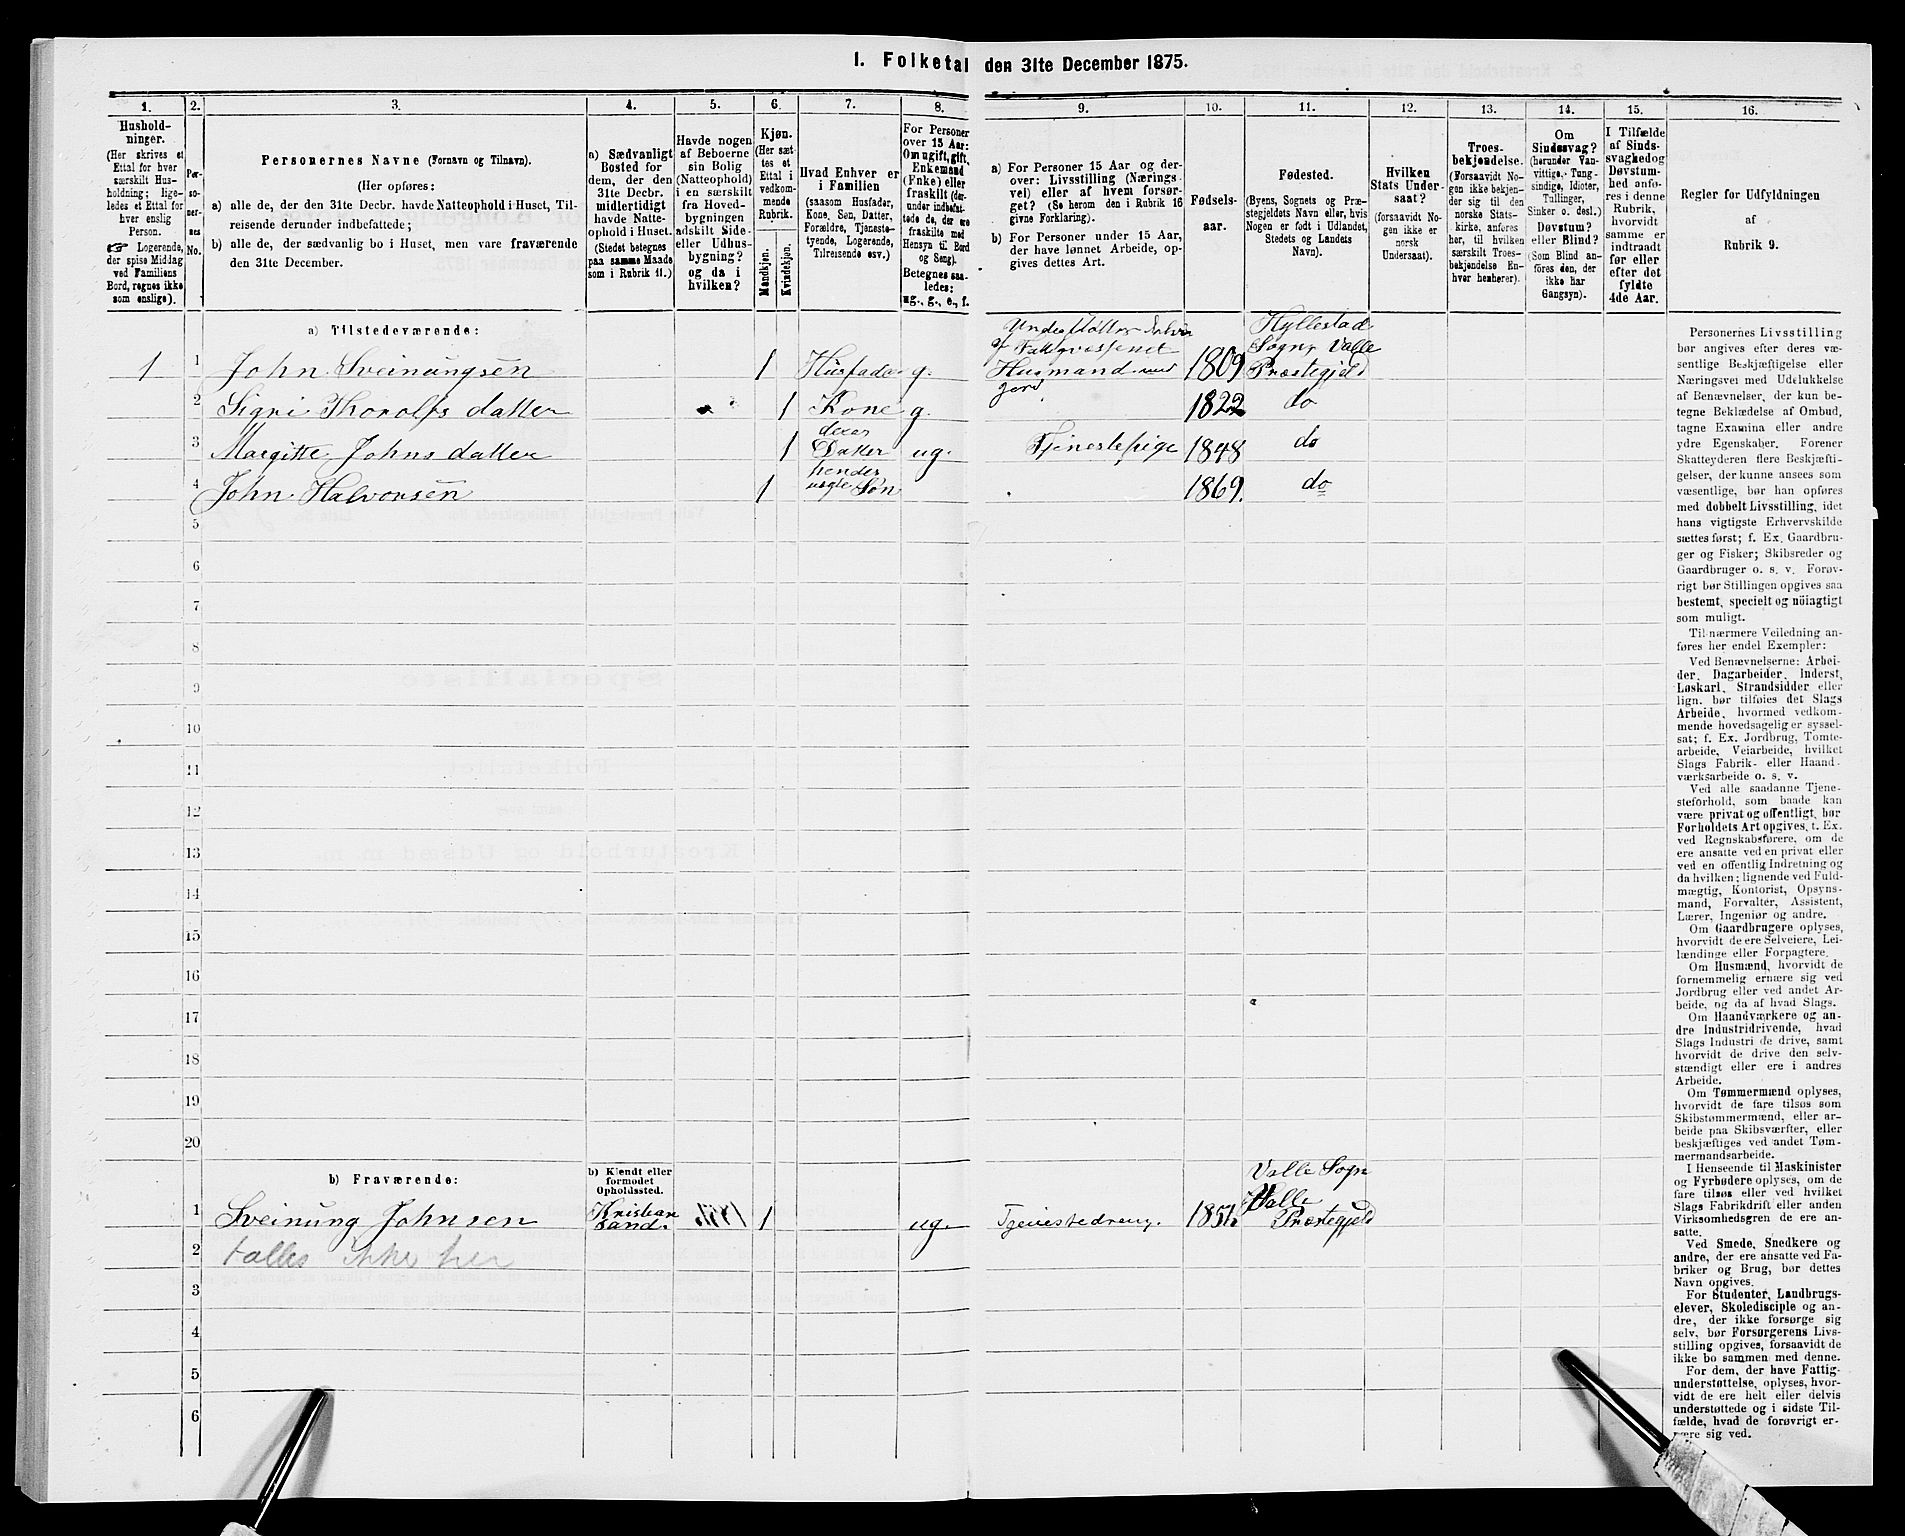 I. Folketal den 31te December 1875.
1. 2. 3. 4. 5. 6. 7. 8. 9. 10. 11. 12. 13. 14. 15. 16.
Hushold-
ninger.
(Her skrives et
Ettal for hver
særskilt Hus-
holdning; lige-
ledes et Ettal for
hver enslig
Person.
☞ Logerende,
der spise Middag
ved Familiens
Bord, regnes ikke
som enslige).
Per-
so-
ner-
nes
No.
Personernes Navne (Fornavn og Tilnavn).
(Her opføres:
a) alle de, der den 31te Decbr. havde Natteophold i Huset, Til-
reisende derunder indbefattede;
b) alle de, der sædvanlig bo i Huset, men vare fraværende
den 31te December.
a) Sædvanligt
Bosted for
dem, der den
31te Decbr.
midlertidigt
havde Natte-
ophold i Huset.
(Stedet betegnes
paa samme Maade
som i Rubrik 11.)
Havde nogen
af Beboerne
sin Bolig
(Natteophold)
i en særskilt
fra Hoved-
bygningen
adskilt Side-
eller Udhus-
bygning?
og da i
hvilken?
Kjøn.
(Her sæt-
tes et
Ettal i
vedkom-
mende
Rubrik.
Mandkjøn.
Kvindekjøn.
Hvad Enhver er
i Familien
(saasom Husfader,
Kone, Søn, Datter,
Forældre, Tjeneste-
tyende, Logerende,
Tilreisende osv.)
For Personer
over 15 Aar:
Om ugift, gift,
Enkemand
(Enke) eller
fraskilt (der-
under indbefat-
tede de, der ere
fraskilte med
Hensyn til Bord
og Seng).
Betegnes saa-
ledes:
ug., g., e., f.
a) For Personer 15 Aar og der-
over: Livsstilling (Nærings-
vei) eller af hvem forsør-
get? (Se herom den i Rubrik 16
givne Forklaring).
b) For Personer under 15 Aar,
der have lønnet Arbeide, op-
gives dettes Art.
Fødsels-
aar.
Fødested.
(Byens, Sognets og Præ-
stegjeldets Navn eller, hvis
Nogen er født i Udlandet,
Stedets og Landets
Navn).
Hvilken
Stats Under-
saat?
(forsaavidt No-
gen ikke er
norsk
Undersaat).
Troes-
bekjendelse.
(Forsaavidt No-
gen ikke bekjen-
der sig til den
norske Stats-
kirke, anføres
her, til hvilken
særskilt Troes-
bekjendelse En-
hver henhører).
Om
Sindssvag?
(herunder Van-
vittige, Tung-
sindige, Idioter,
Tullinger,
Sinker o. desl.)
Døvstum?
eller Blind?
(Som Blind an-
føres den, der
ikke har
Gangsyn).
I Tilfælde
af Sinds-
svaghed og
Døvstum-
hed anfø-
res i denne
Rubrik,
hvorvidt
samme er
indtraadt
før eller
efter det
fyldte
4de Aar.
Regler for Udfyldningen
af
Rubrik 9.
a) Tilstedeværende:
1 1 John Sveinungsen 1 Husfader g. Understøttes delvis af Fattigvæsenet Husmand med Jord 1809 Hyllestad Sogn, Valle Præstegjeld
2 Signi Thorolfsdatter 1 Kone g. 1822 do
3 Margitte Johnsdatter 1 deres Datter ug. Tjenestepige 1848 do
4 John Halvorsen 1 hendes uegte Søn 1869. do
5
6
7
8
9
10
11
12
13
14
15
16
17
18
19
20
b) Fraværende:
b) Kjendt eller
formodet
Opholdssted.
1 Sveinung Johnsen Kristiansand. 1 ug. Tjenestedreng. Valle Sogn Valle Præstegjeld
2 talles ikke her
3
4
5
6
Personernes Livsstilling
bør angives efter deres væ-
sentlige Beskjæftigelse eller
Næringsvei med Udelukkelse
af Benævnelser, der kun be-
tegne Beklædelse af Ombud,
tagne Examina eller andre
ydre Egenskaber. Forener
Skatteyderen flere Beskjæfti-
gelser, der kunne ansees som
væsentlige, bør han opføres
med dobbelt Livsstilling, idet
hans vigtigste Erhvervskilde
sættes først; f. Ex. Gaardbru-
ger og Fisker; Skibsreder og
Gaardbruger o. s. v. Forøv-
rigt bør Stillingen opgives saa
bestemt, specielt og nöiagtigt
som muligt.
Til nærmere Veiledning an-
føres her endel Exempler:
Ved Benævnelserne: Arbei-
der, Dagarbeider, Inderst,
Løskarl, Strandsidder eller
lign. bør tilføies det Slags
Arbeide, hvormed vedkom-
mende hovedsagelig er syssel-
sat; f. Ex. Jordbrug, Tomte-
arbeide, Veiarbeide, hvilket
Slags Fabrik- eller Haand-
værksarbeide o. s. v.
Ved alle saadanne Tjene-
steforhold, som baade kan
være privat og offentligt, bør
Forholdets Art opgives, t. Ex.
ved Regnskabsførere, om de
ere ansatte ved en privat eller
ved en offentlig Indretning og
da hvilken; lignende ved Fuld-
mægtig, Kontorist, Opsyns-
mand, Forvalter, Assistent,
Lærer, Ingeniør og andre.
Om Gaardbrugere oplyses,
hvorvidt de ere Selveiere, Lei-
lændinge eller Forpagtere.
Om Husmænd, hvorvidt de
fornemmelig ernære sig ved
Jordbrug eller ved andet Ar-
beide, og da af hvad Slags.
Om Haandværkere og an-
dre Industridrivende, hvad
Slags Industri de drive, samt
hvorvidt de drive den selv-
stændigt eller ere i andres
Arbeide.
Om Tømmermænd oplyses,
hvorvidt de fare tilsøs som
Skibstømmermænd, eller ar-
beide paa Skibsværfter, eller
beskjæftiges ved andet Tøm-
mermandsarbeide.
I Henseende til Maskinister
og Fyrbødere oplyses, om de
fare tilsøs eller ved hvilket
Slags Fabrikdrift eller anden
Virksomhedsgren de ere an-
satte.
Ved Smede, Snedkere og
andre, der ere ansatte ved Fa-
briker og Brug, bør dettes
Navn opgives.
For Studenter, Landbrugs-
elever, Skoledisciple og an-
dre, der ikke forsørge sig
selv, bør Forsørgerens Livs-
stilling opgives, forsaavidt de
ikke bo sammen med denne.
For dem, der have Fattig-
understøttelse, oplyses, hvor-
vidt de ere helt eller delvis
understøttede og i sidste Til-
fælde, hvad de forøvrigt er-
nære sig ved.